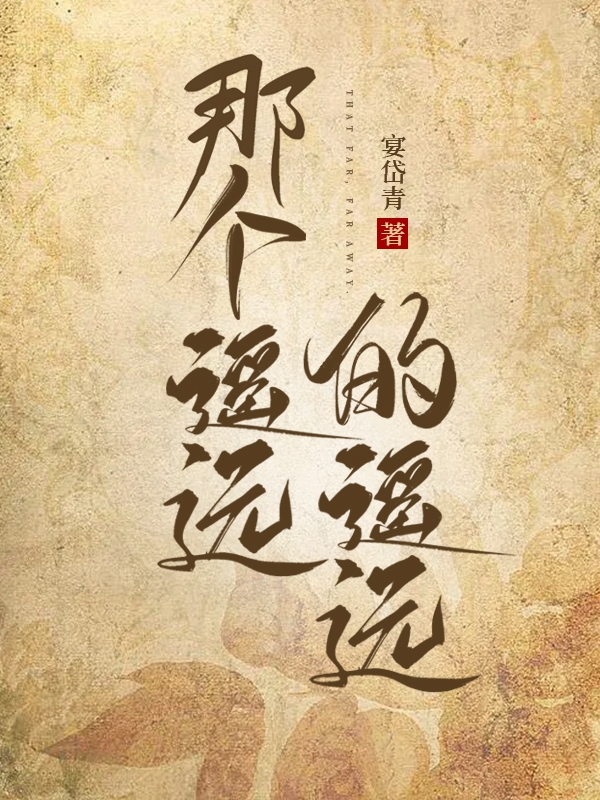 那个遥远
的遥远
THAT FAR, FAR AWAY.
宴岱青
著